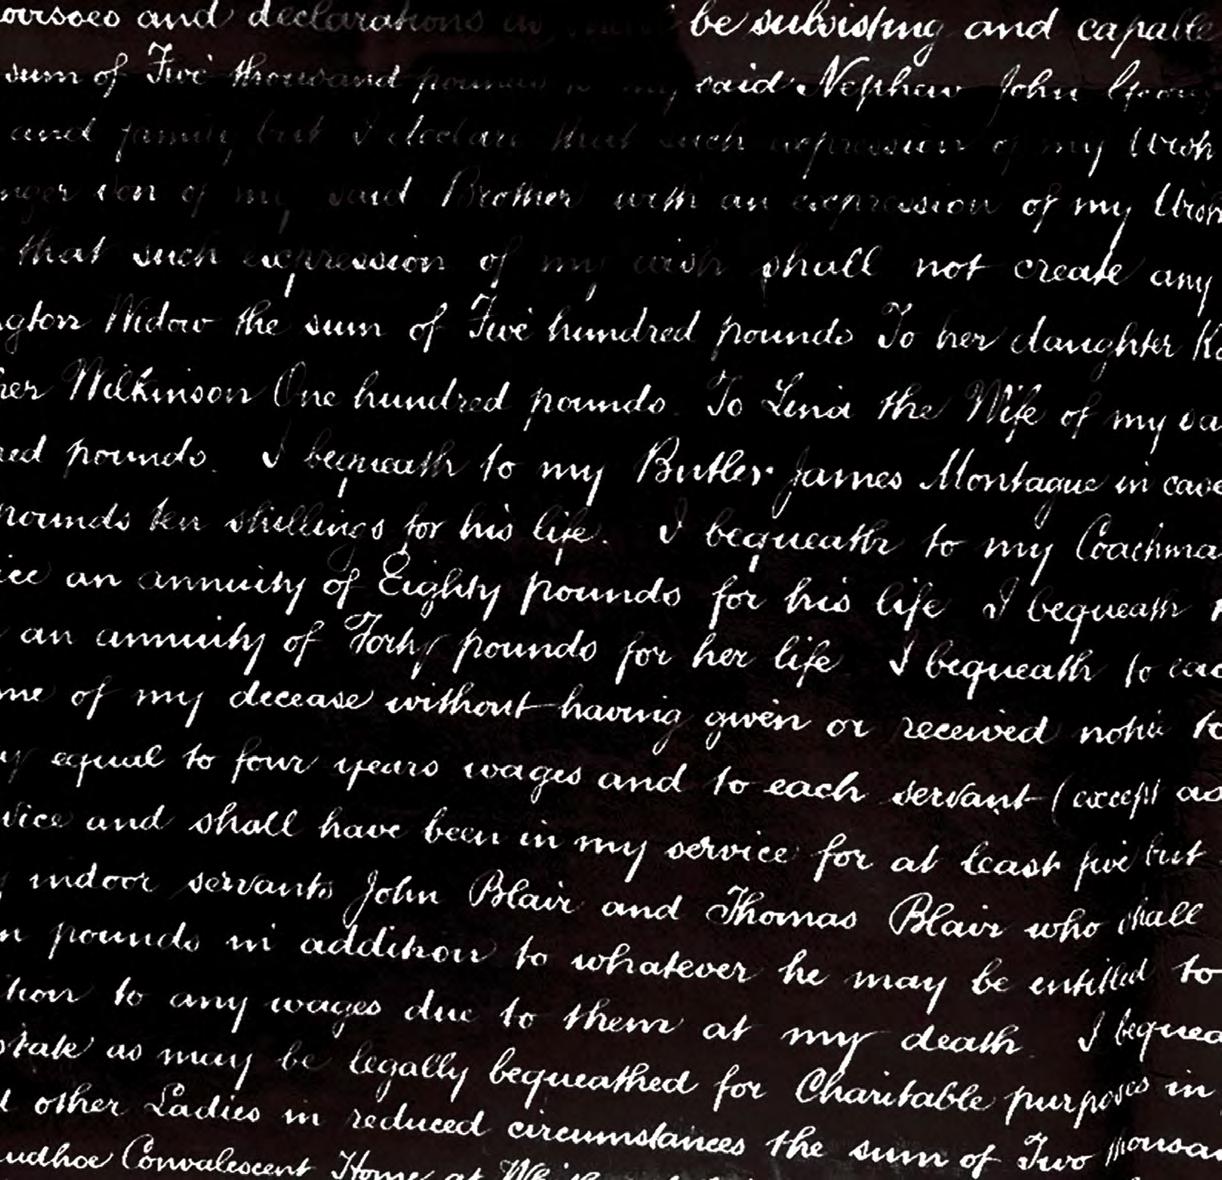 and declarations be subsisting and capable
sum of Five thousand pounds to my said Nephew John
and family but I declare that such expression of my Wish
son of my said Brother with an expression of my Wish
that such expression of my wish shall not create any
Widow the sum of Five hundred pounds To her daughter
Wilkinson One hundred pounds. To Lina the Wife of my
pounds. I bequeath to my Butler James Montague in case
pounds ten shillings for his life. I bequeath to my Coachma
an annuity of Eighty pounds for his life I bequeath
an annuity of Forty pounds for her life I bequeath to eac
me of my decease without having given or received notice to
equal to four years wages and to each servant (except as
vice and shall have been in my service for at least five but
indoor servants John Blair and Thomas Blair who shall
pounds in addition to whatever he may be entitled to
tion to any wages due to them at my death. I bequea
state as may be legally bequeathed for Charitable purposes in
other Ladies in reduced circumstances the sum of Two thousan
udhoe Convalescent Home at